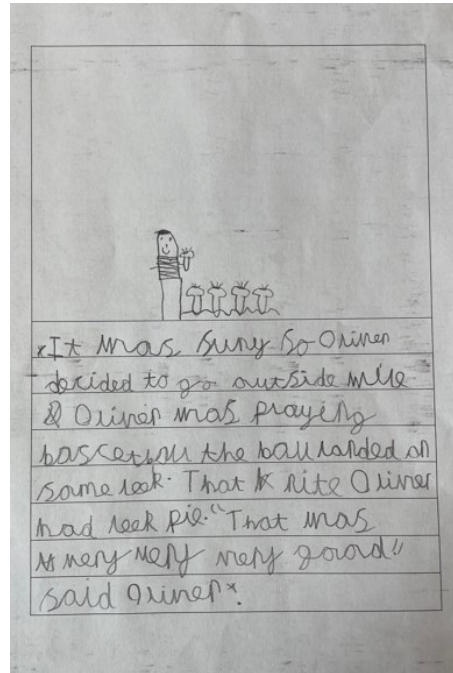 ×It was suny so Oliver
decided to go outside wile
Oliver was playing
bascetball the ball landed on
some leek. That nite Oliver
had leek pie. "That was
very very very good"
said Oliver×.